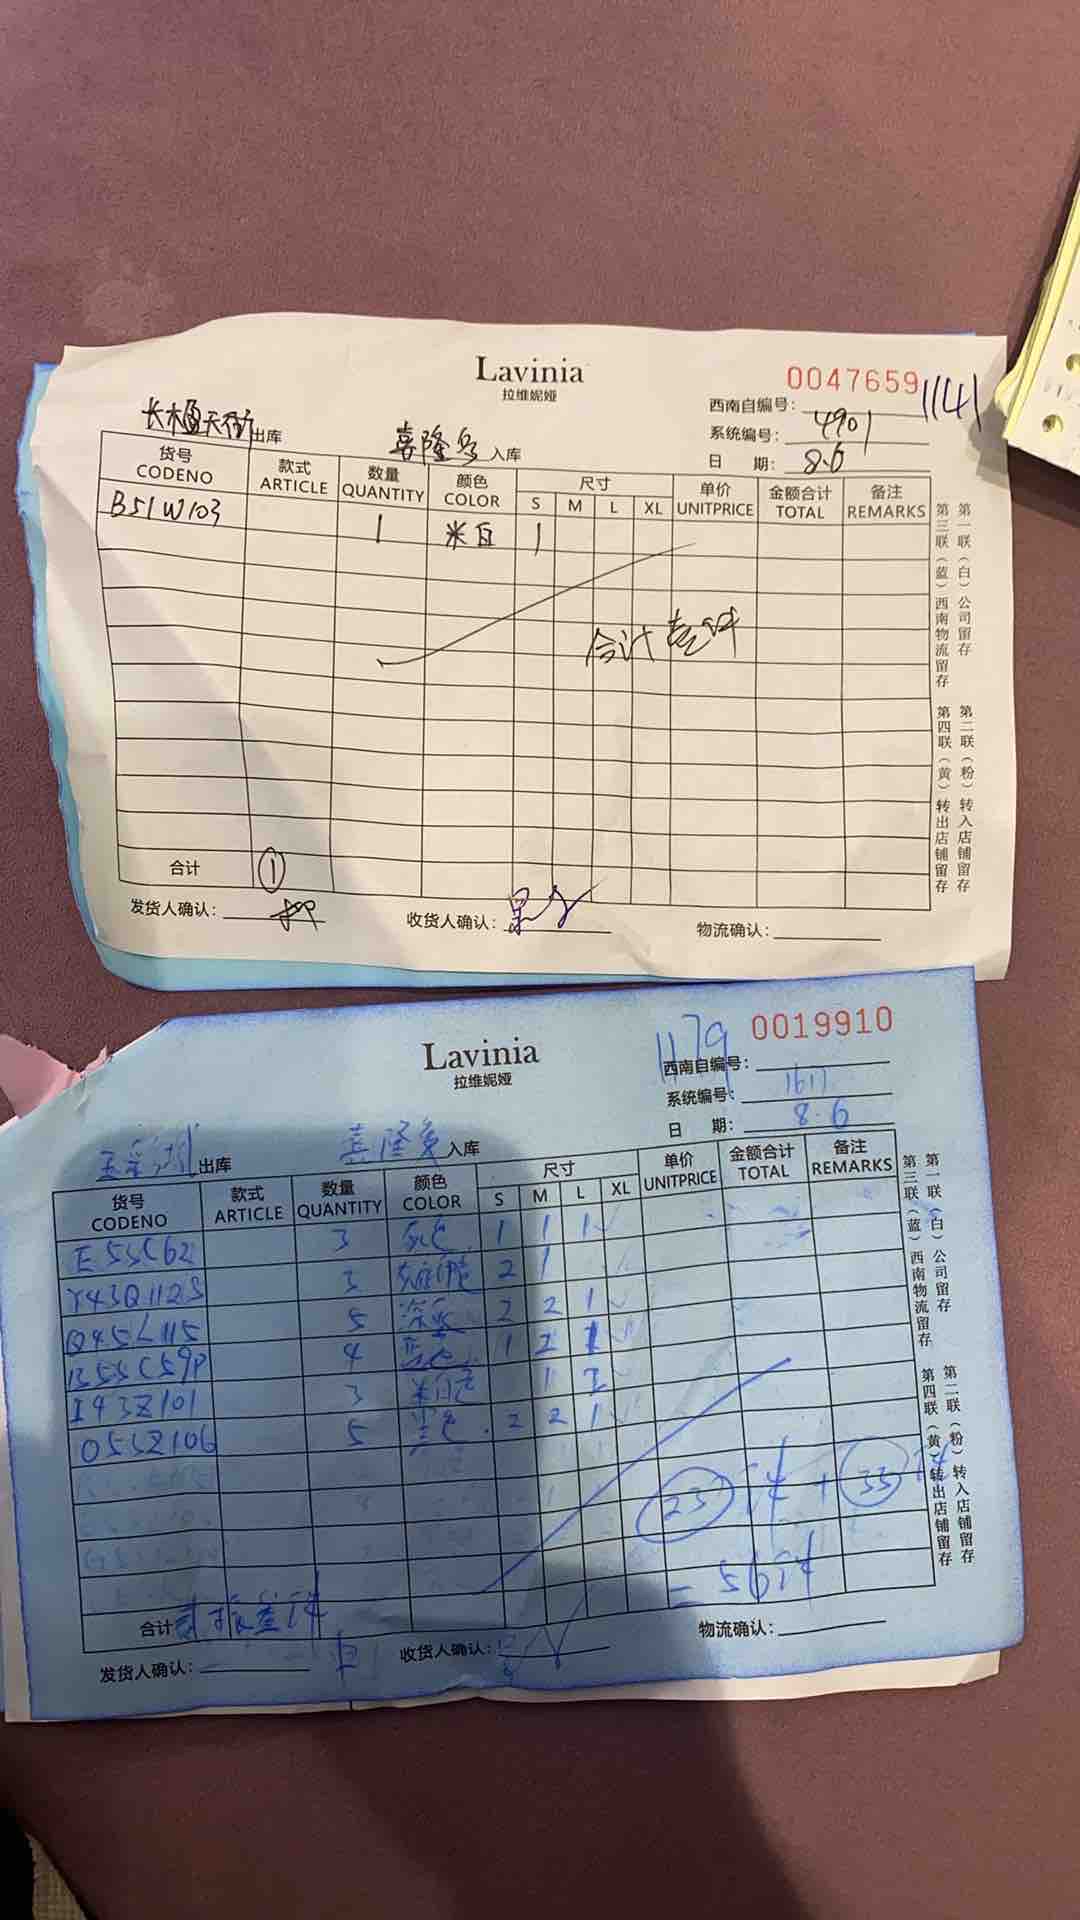 Lavinia
拉维妮娅
0047659
1141
西南自编号：
系统编号： 4901
日 期： 8.6
天街 出库
喜隆多 入库
货号 款式 数量 颜色 尺寸 单价 金额合计 备注
CODENO ARTICLE QUANTITY COLOR S M L XL UNITPRICE TOTAL REMARKS
B51W103 1 米白 1
合计 壹件
合计 ①
发货人确认：
收货人确认：
物流确认：
第一联（白）公司留存
第二联（粉）转入店铺留存
第三联（蓝）西南物流留存
第四联（黄）转出店铺留存
Lavinia
拉维妮娅
0019910
1179
西南自编号：
系统编号： 1617
日 期： 8.6
出库
入库
货号 款式 数量 颜色 尺寸 单价 金额合计 备注
CODENO ARTICLE QUANTITY COLOR S M L XL UNITPRICE TOTAL REMARKS
E55C62 3 1 1 1
Y43Q112S 3 2 1
Q45L115 5 2 2 1
B55C59P 4 1
I43Z101 3 米白色 1
O55Z106 5 2 2 1
23件+33件
=56件
合计
发货人确认：
收货人确认：
物流确认：
第一联（白）公司留存
第二联（粉）转入店铺留存
第三联（蓝）西南物流留存
第四联（黄）转出店铺留存